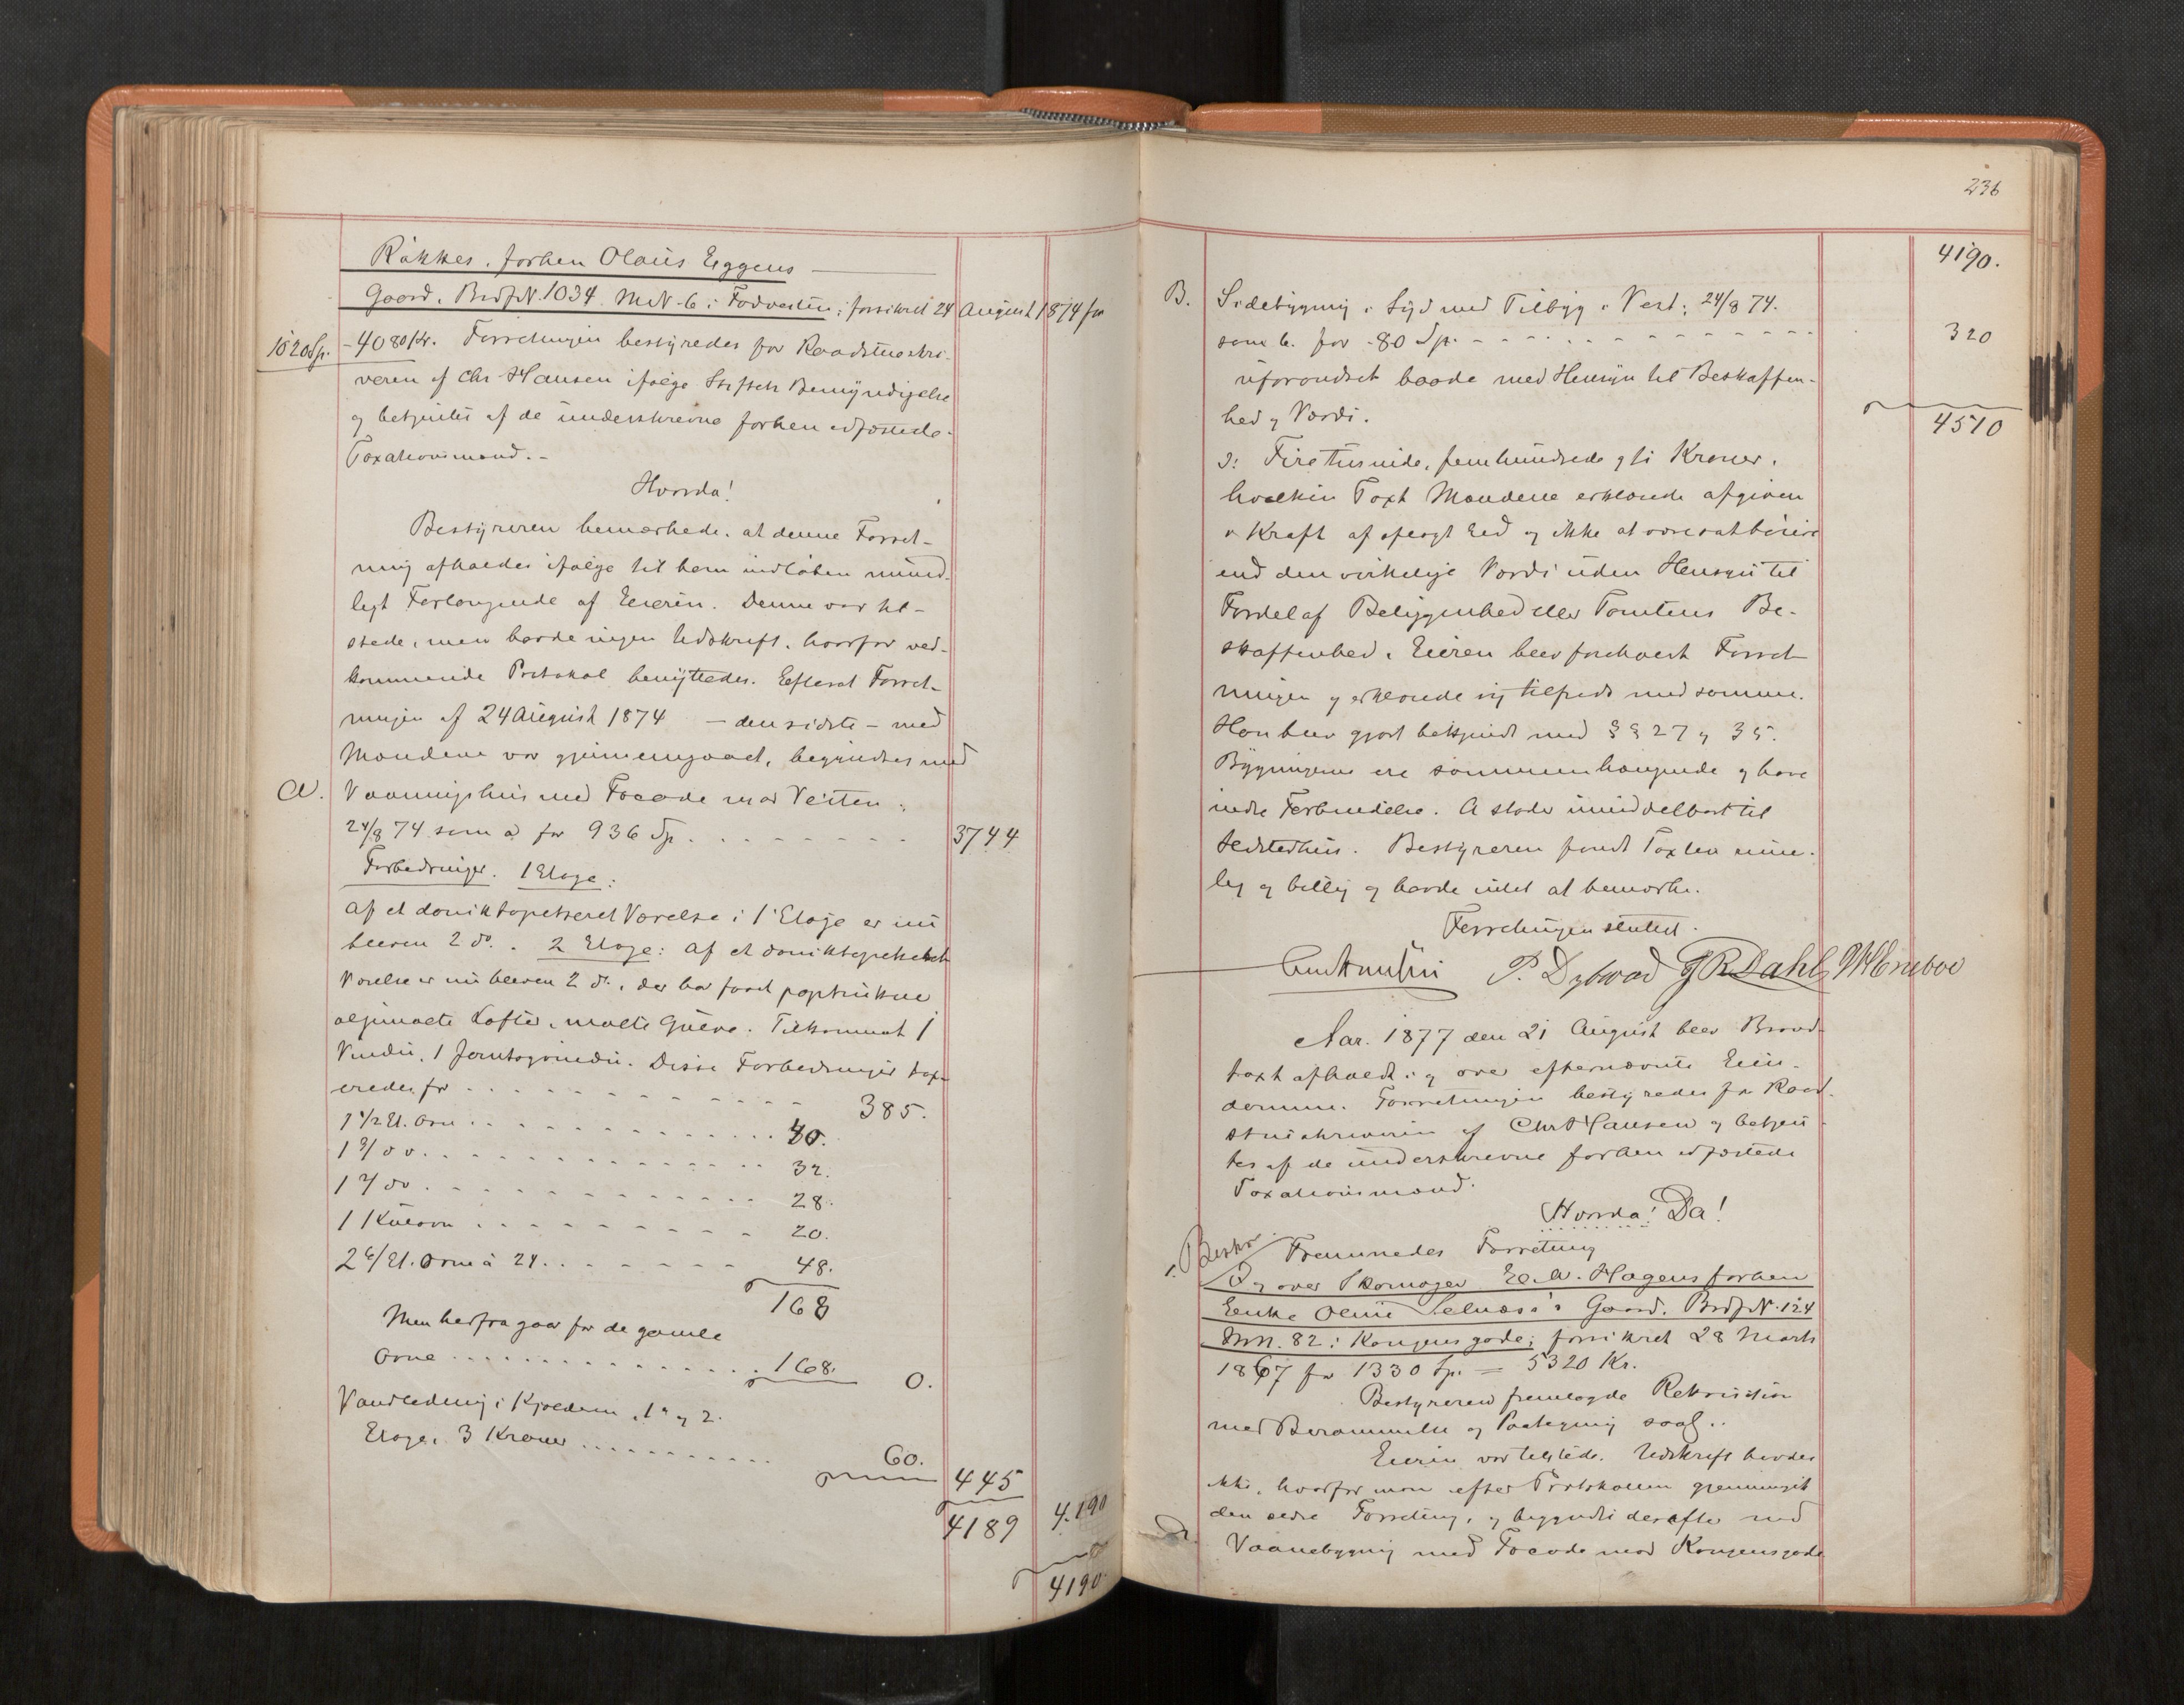 Råkkes, forhen Olaus Eggens
Gaard, BrdfN. 1034 MN-6 i Fodvesten; forsikret 24 August 1874 for
1020 Sp. - 4080 Kr. Forretningen bestyredes for Raadstueskri-
veren af Chr Hansen ifølge Stiftets Bemyndigelse
og betjentes af de underskrevne forhen edfæstede
Taxationsmænd. -
Hvorda!
Bestyreren bemærkede, at denne Forret-
ning afholdes ifølge til ham indløben mundt-
ligt Forlangende af Eieren. Denne var til-
stede, men havde ingen Udskrift, hvorfor ved-
kommende Protokol benyttedes. Efterat Forret-
ningen af 24 August 1874 - den sidste - med
Mændene var gjennemgaaet, begyndtes med
A. Vaaningshus med Facade mod Veiten;
24/8 74 som a for 936 Sp. 3744
Forbedringer. 1 Etage:
Af et Værelse i 1 Etage er nu
bleven 2 do. 2 Etage: Af et
Værelse er nu bleven 2 do., der har faaet paptrukne
oljemalte Lofter, malte Gulve. Tilkommet 1
Vindu, 1 Jerntagvindu. Disse Forbedringer tax-
eredes for 385.
1 4/2 Et. Ovn 40.
1 3/ do 32.
1 2/ do 28.
1 Kulovn 20.
2 4/ Et. Ovne à 24. 48.
168
Men herfra gaar for de gamle
Ovne 168. 0.
Vandledning i Kjælderen, 1ste og 2.
Etage, 3 Kraner 60.
445
4189 4.190
4190
236
4190.
B. Sidebygning i Syd med Tilbyg i Vest; 24/8 74.
som b. for 80 Sp. 320
uforandret baade med Hensyn til Beskaffen-
hed og Værdi.
4510
ɔ: Firetusinde, femhundrede og ti Kroner,
hvilken Taxt Mændene erklærede afgiven
i Kraft af aflagt Eed og ikke at være sat høiere
end den virkelige Værdi uden Hensyn til
Fordel af Beliggenhed eller Tomtens Be-
skaffenhed. Eieren blev forelæst Forret-
ningen og erklærede sig tilfreds med samme.
Han blev gjort bekjendt med §§ 27 og 35.
Bygningerne ere sammenhængende og have
indre Forbindelse. A støder umiddelbart til
Bestyreren fandt Taxten rime-
lig og billig og havde intet at bemærke.
Forretningen sluttet.
Chr Hansen P. Dybwad JRDahl
Aar 1877 den 21 August blev Brand-
taxt afholdt i og over efternævnte Eien-
domme. Forretningen bestyredes for Raad-
stueskriveren af Chr Hansen og betjen-
tes af de underskrevne forhen edfæstede
Taxationsmænd.
Hvorda! Da!
Fremmedes Forretning
og over Skomager E. A. Hagens forhen
Enke Oline Selnæs's Gaard, BrdfN. 124
MN. 82 i Kongensgade; forsikret 28 Marts
1867 for 1330 Sp. - 5320 Kr.
Bestyreren fremlagde Rekvisition
med Berammelse og Paategning saal..
Eieren var tilstede. Udskrift havdes
ikke, hvorfor man efter Protokollen gjennemgik
den ældre Forretning, og begyndte derefter med
Vaanebygning med Facade mod Kongensgade